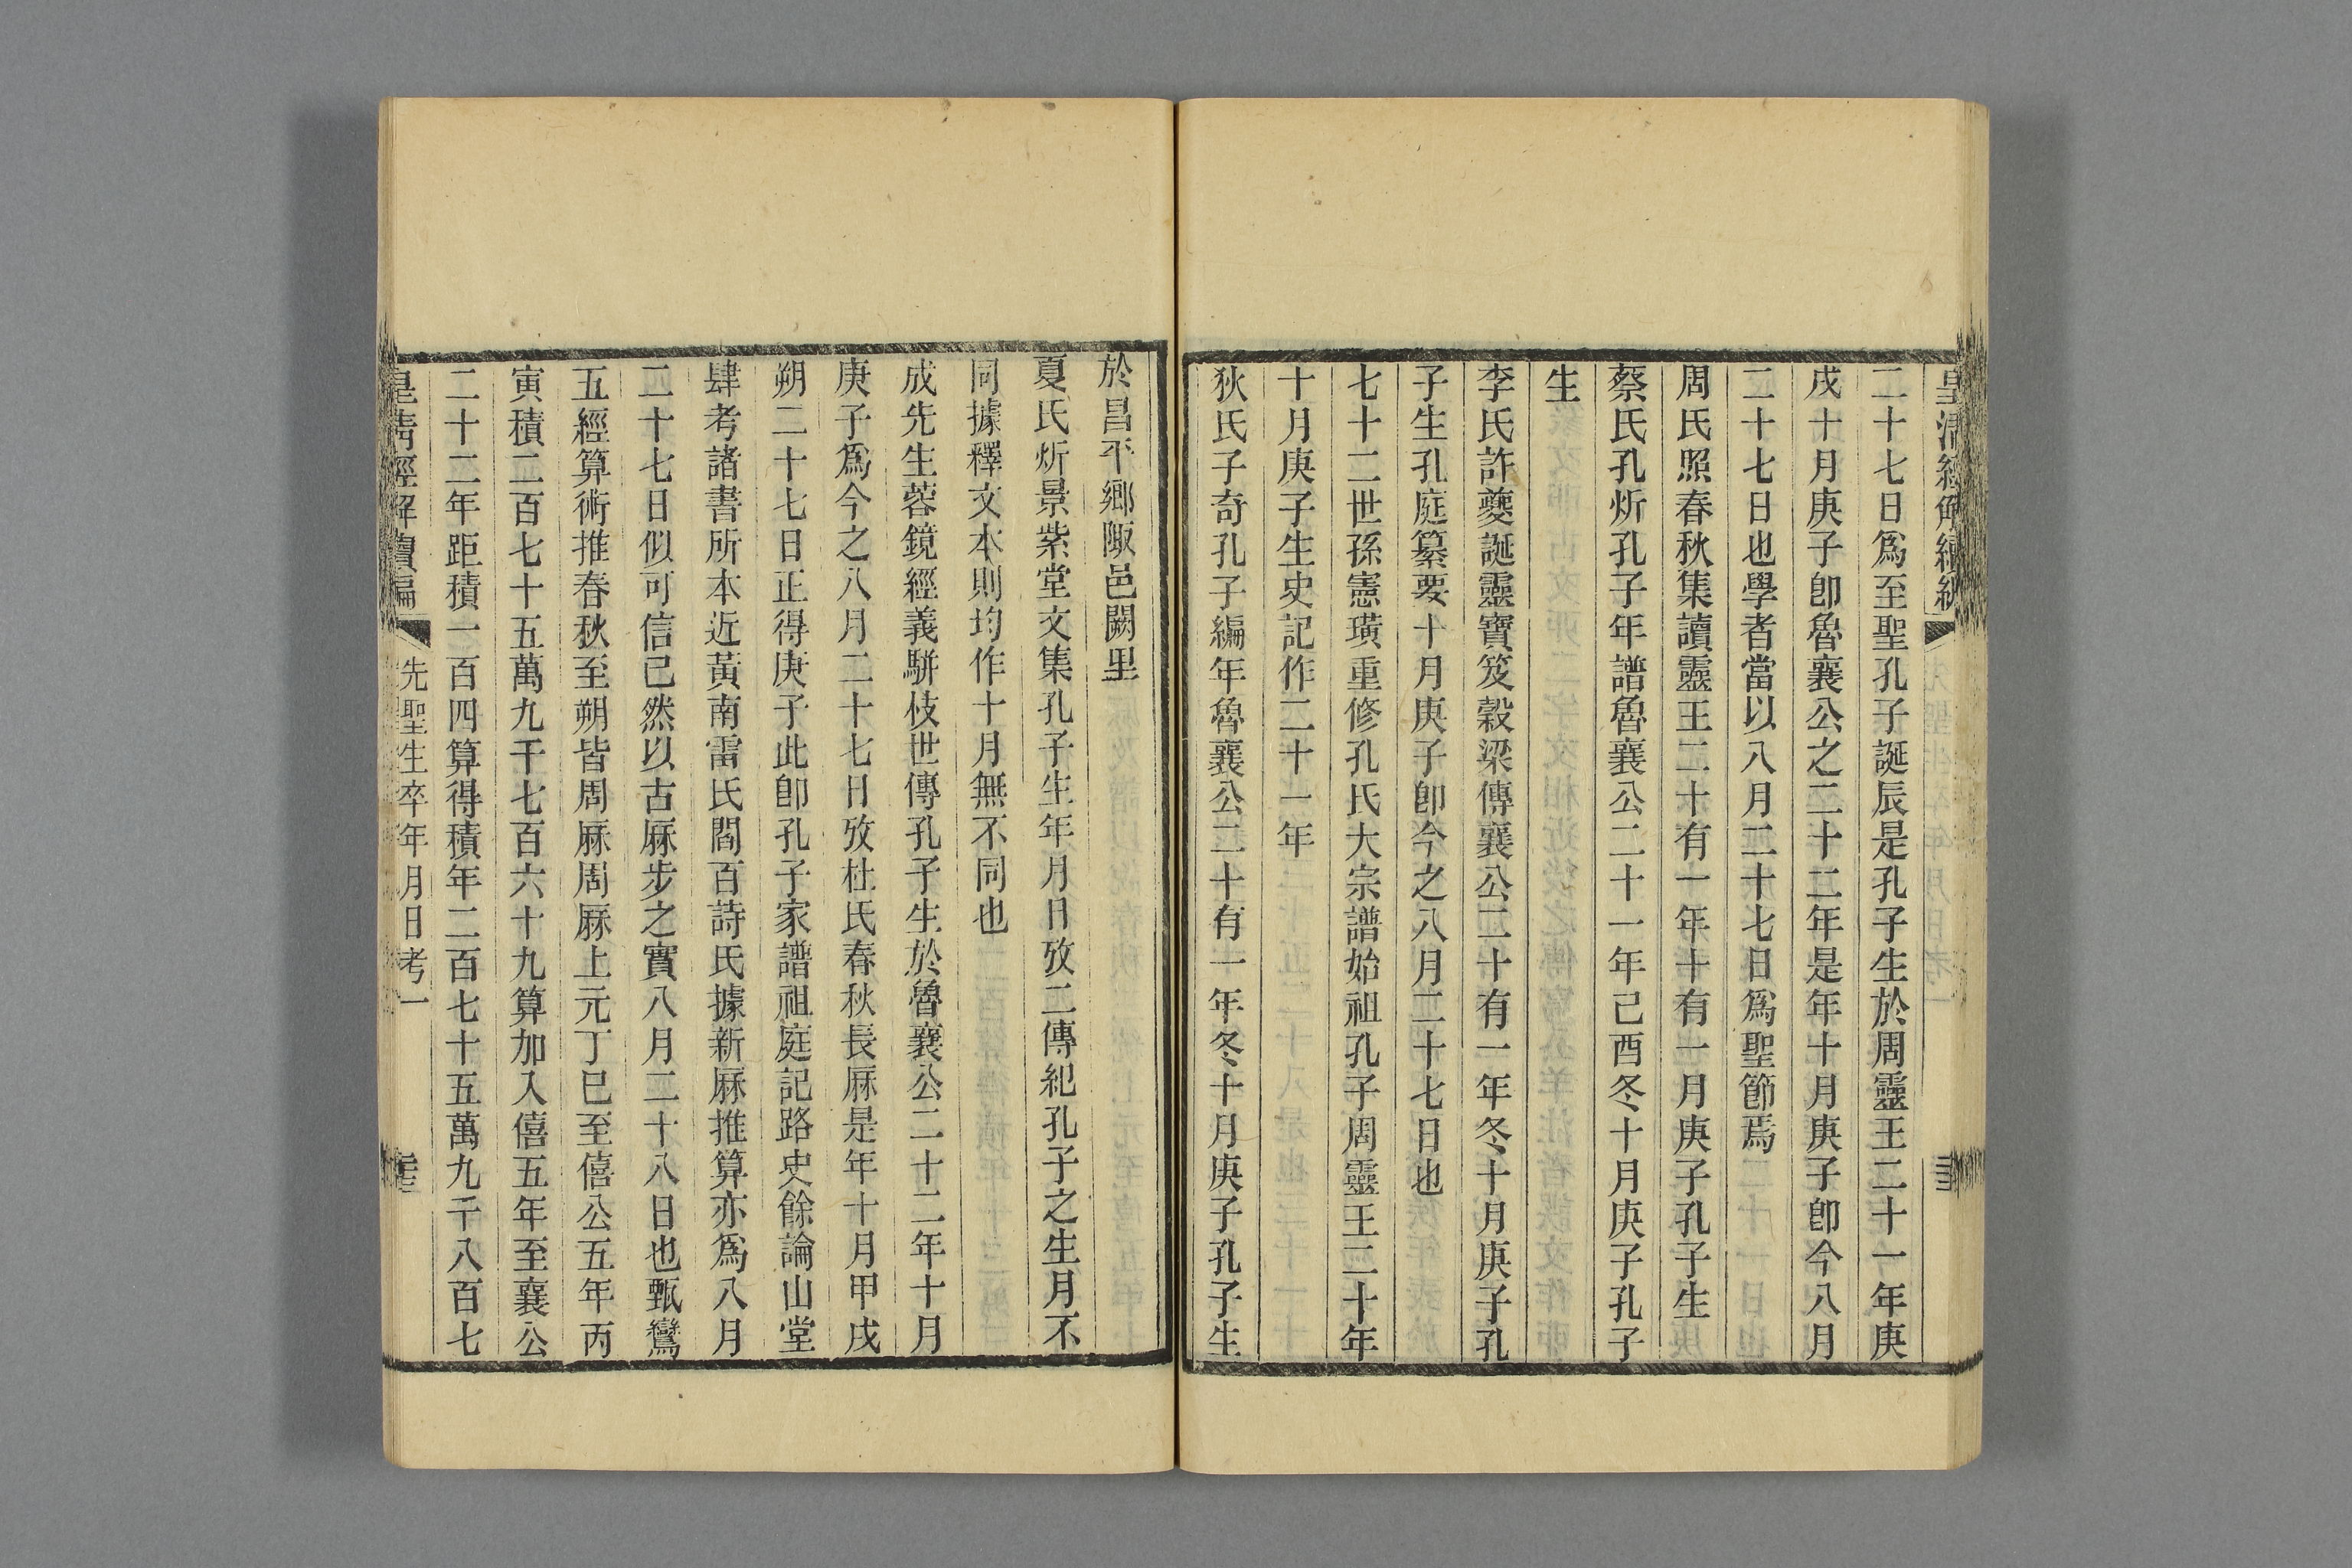 皇清經解續編
二十七日爲至聖孔子誕辰是孔子生於周靈王二十一年庚
戌十月庚子卽魯襄公之二十二年是年十月庚子卽今八月
二十七日也學者當以八月二十七日爲聖節焉
周氏照春秋集讀靈王二十有一年十有一月庚子孔子生
蔡氏孔炘孔子年譜魯襄公二十一年己酉冬十月庚子孔子
生
李氏許夔誕靈寶笈穀梁傳襄公二十有一年冬十月庚子孔
子生孔庭纂要十月庚子卽今之八月二十七日也
七十二世孫憲璜重修孔氏大宗譜始祖孔子周靈王二十年
十月庚子生史記作二十一年
狄氏子奇孔子編年魯襄公二十有一年冬十月庚子孔子生
於昌平鄉陬邑闕里
夏氏炘景紫堂文集孔子生年月日攷二傳紀孔子之生月不
同據釋文本則均作十月無不同也
成先生蓉鏡經義駢枝世傳孔子生於魯襄公二十二年十月
庚子爲今之八月二十七日攷杜氏春秋長厤是年十月甲戌
朔二十七日正得庚子此卽孔子家譜祖庭記路史餘論山堂
肆考諸書所本近黃南雷氏閻百詩氏據新厤推算亦爲八月
二十七日似可信已然以古厤步之實八月二十八日也甄鸞
五經算術推春秋至朔皆周厤周厤上元丁巳至僖公五年丙
寅積二百七十五萬九千七百六十九算加入僖五年至襄公
二十二年距積一百四算得積年二百七十五萬九千八百七
皇清經解續編
先聖生卒年月日考一